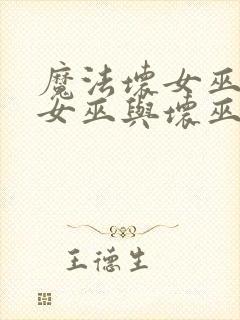 魔法壞女巫
女巫與壞巫
王德生